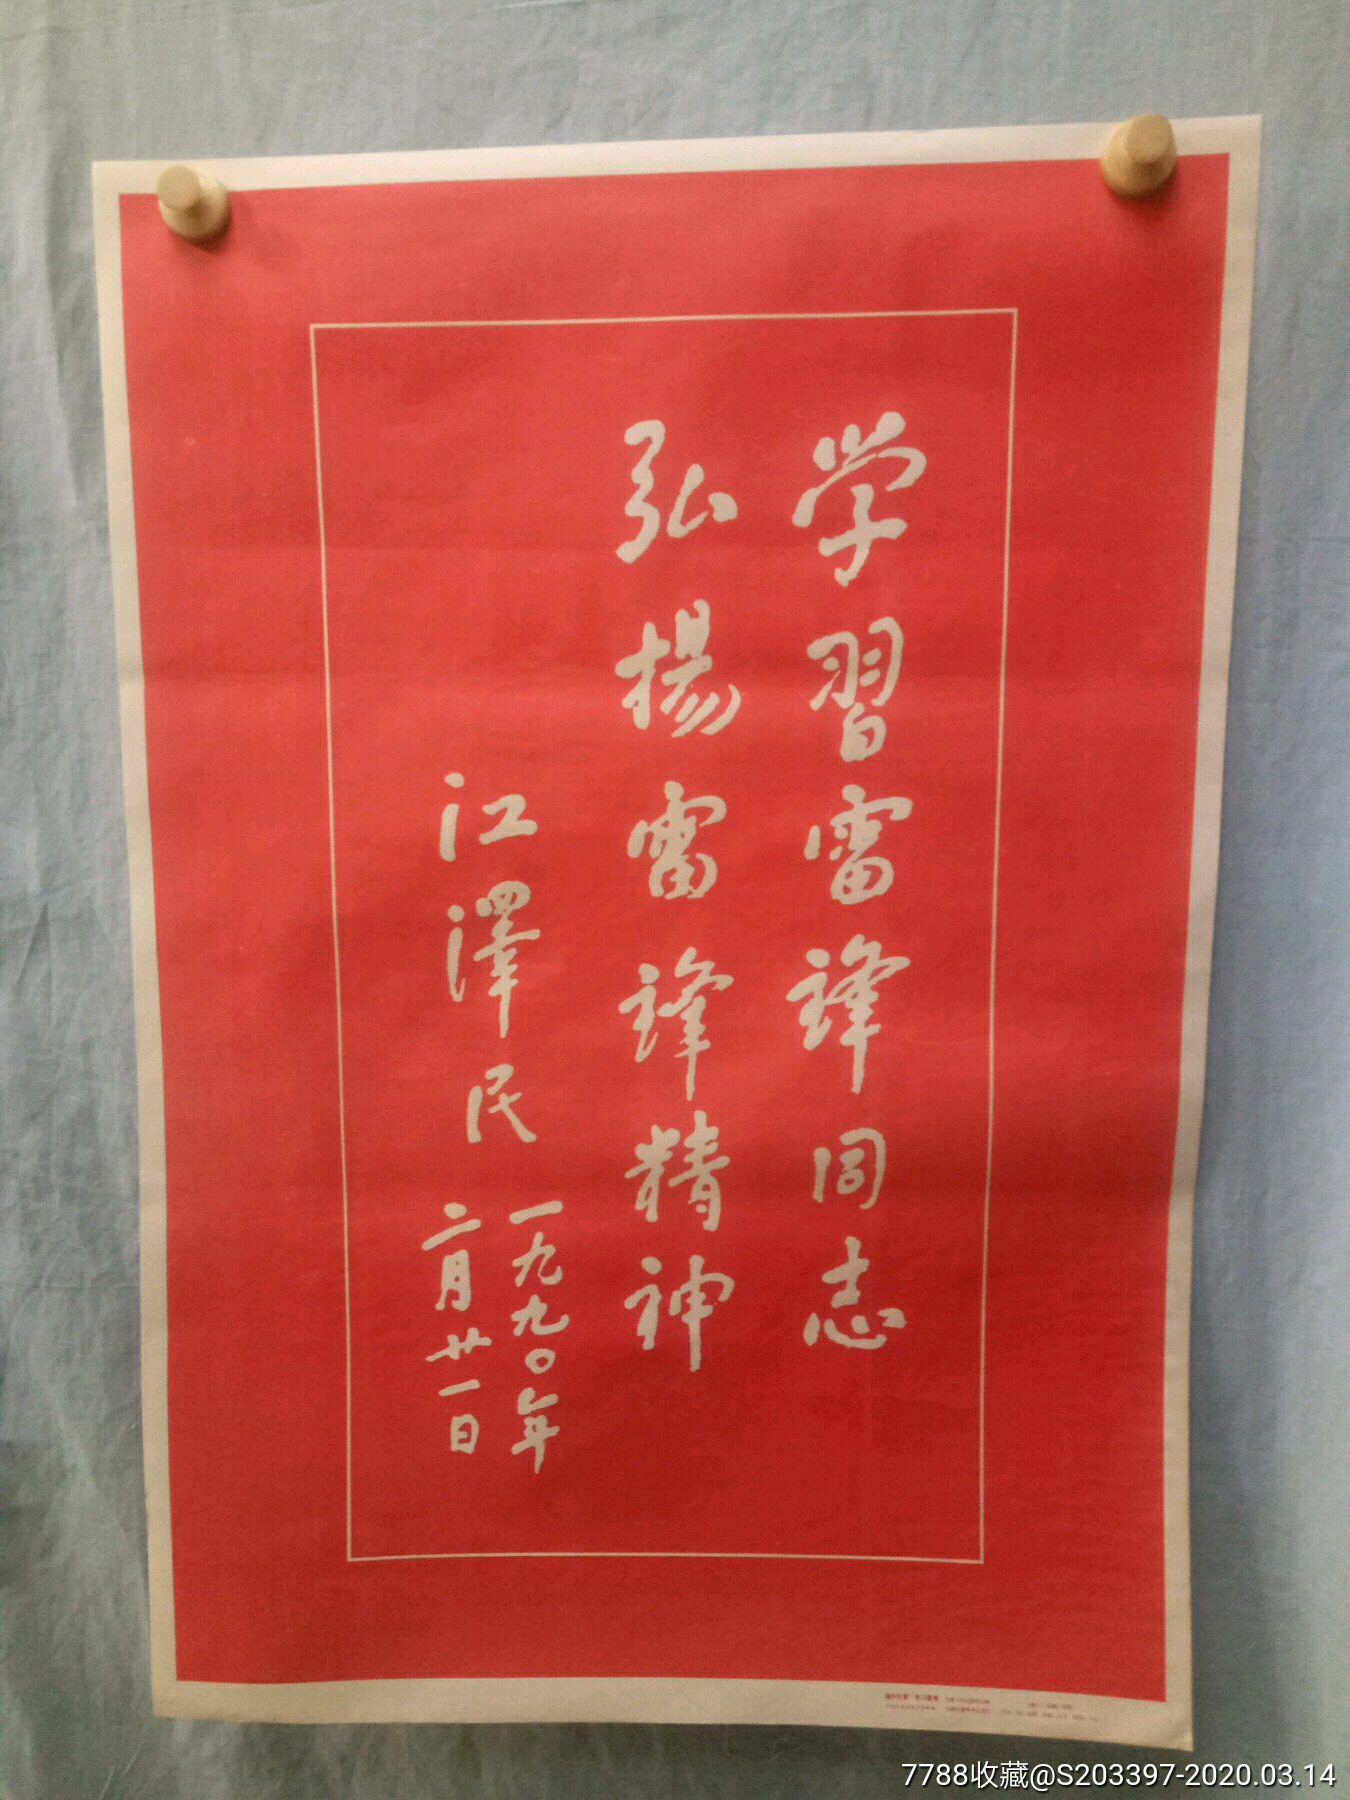 学習雷锋同志
弘揚雷锋精神
江澤民
一九九〇年
二月廿一日
7788收藏@S203397-2020.03.14